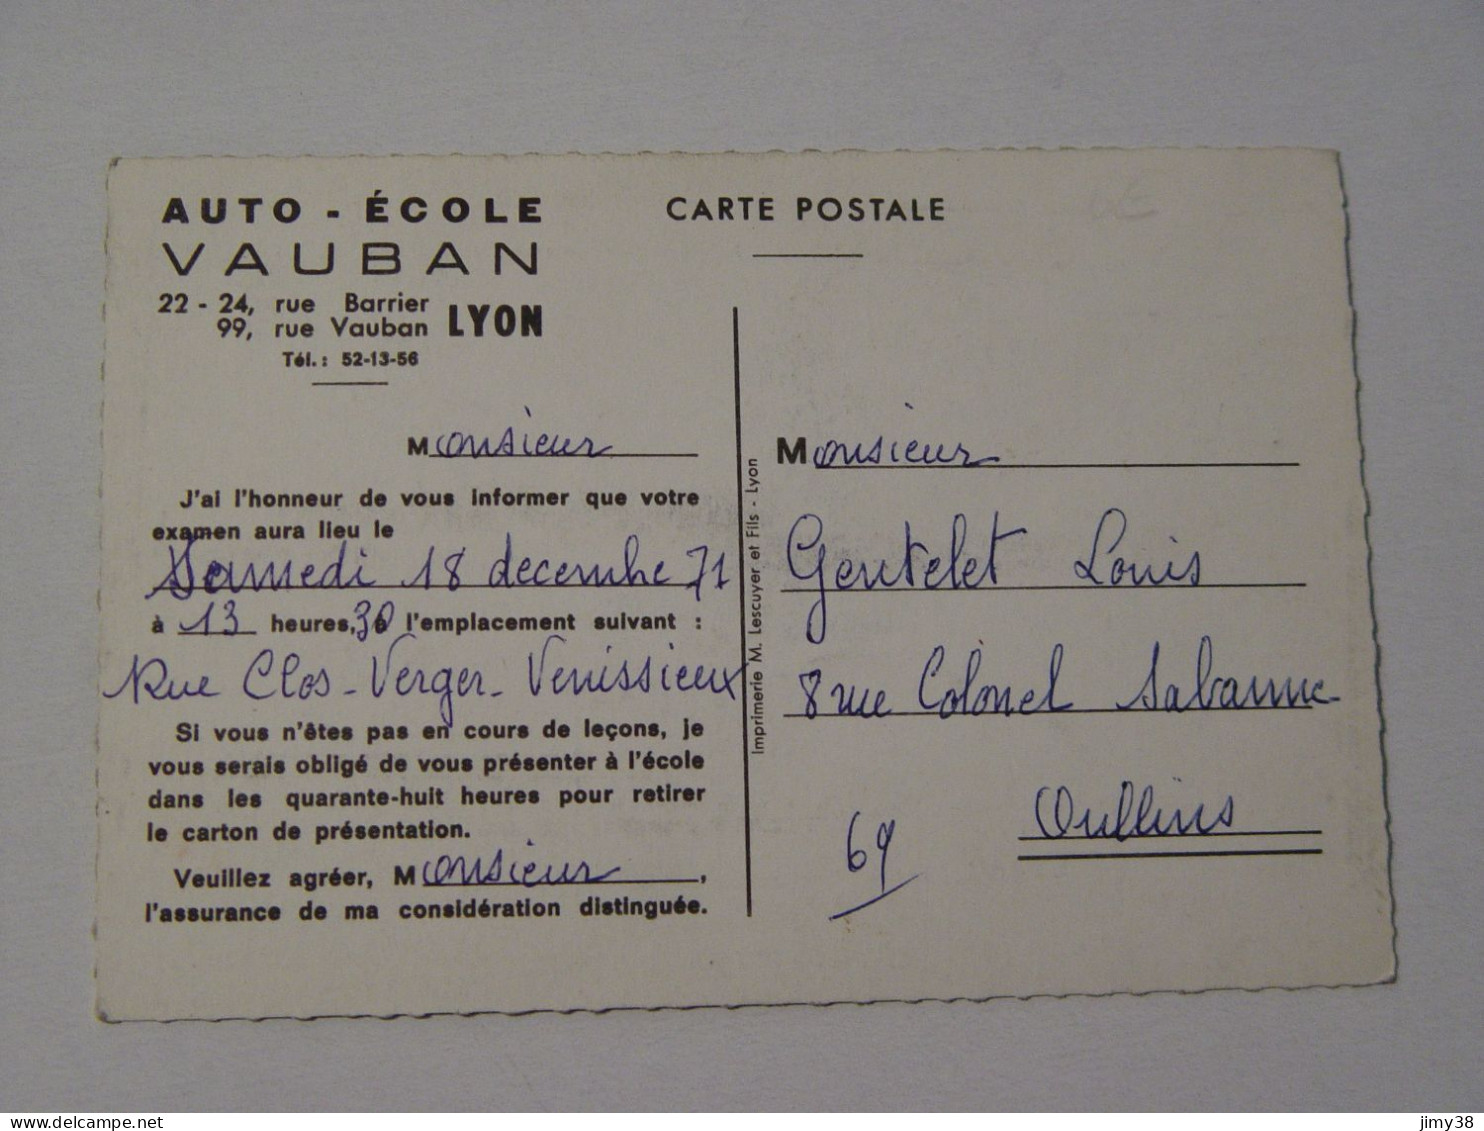 AUTO - ÉCOLE
VAUBAN
22 - 24, rue Barrier
99, rue Vauban LYON
Tél. : 52-13-56
Monsieur
J'ai l'honneur de vous informer que votre
examen aura lieu le
Samedi 18 decembre 71
à 13 heures, 30 l'emplacement suivant :
Rue Clos - Verger - Venissieux
Si vous n'êtes pas en cours de leçons, je
vous serais obligé de vous présenter à l'école
dans les quarante-huit heures pour retirer
le carton de présentation.
Veuillez agréer, Monsieur,
l'assurance de ma considération distinguée.
CARTE POSTALE
Imprimerie M. Lescuyer et Fils - Lyon
Monsieur
Gentelet Louis
8 rue Colonel
Oullins
69
www.delcampe.net
jimy38